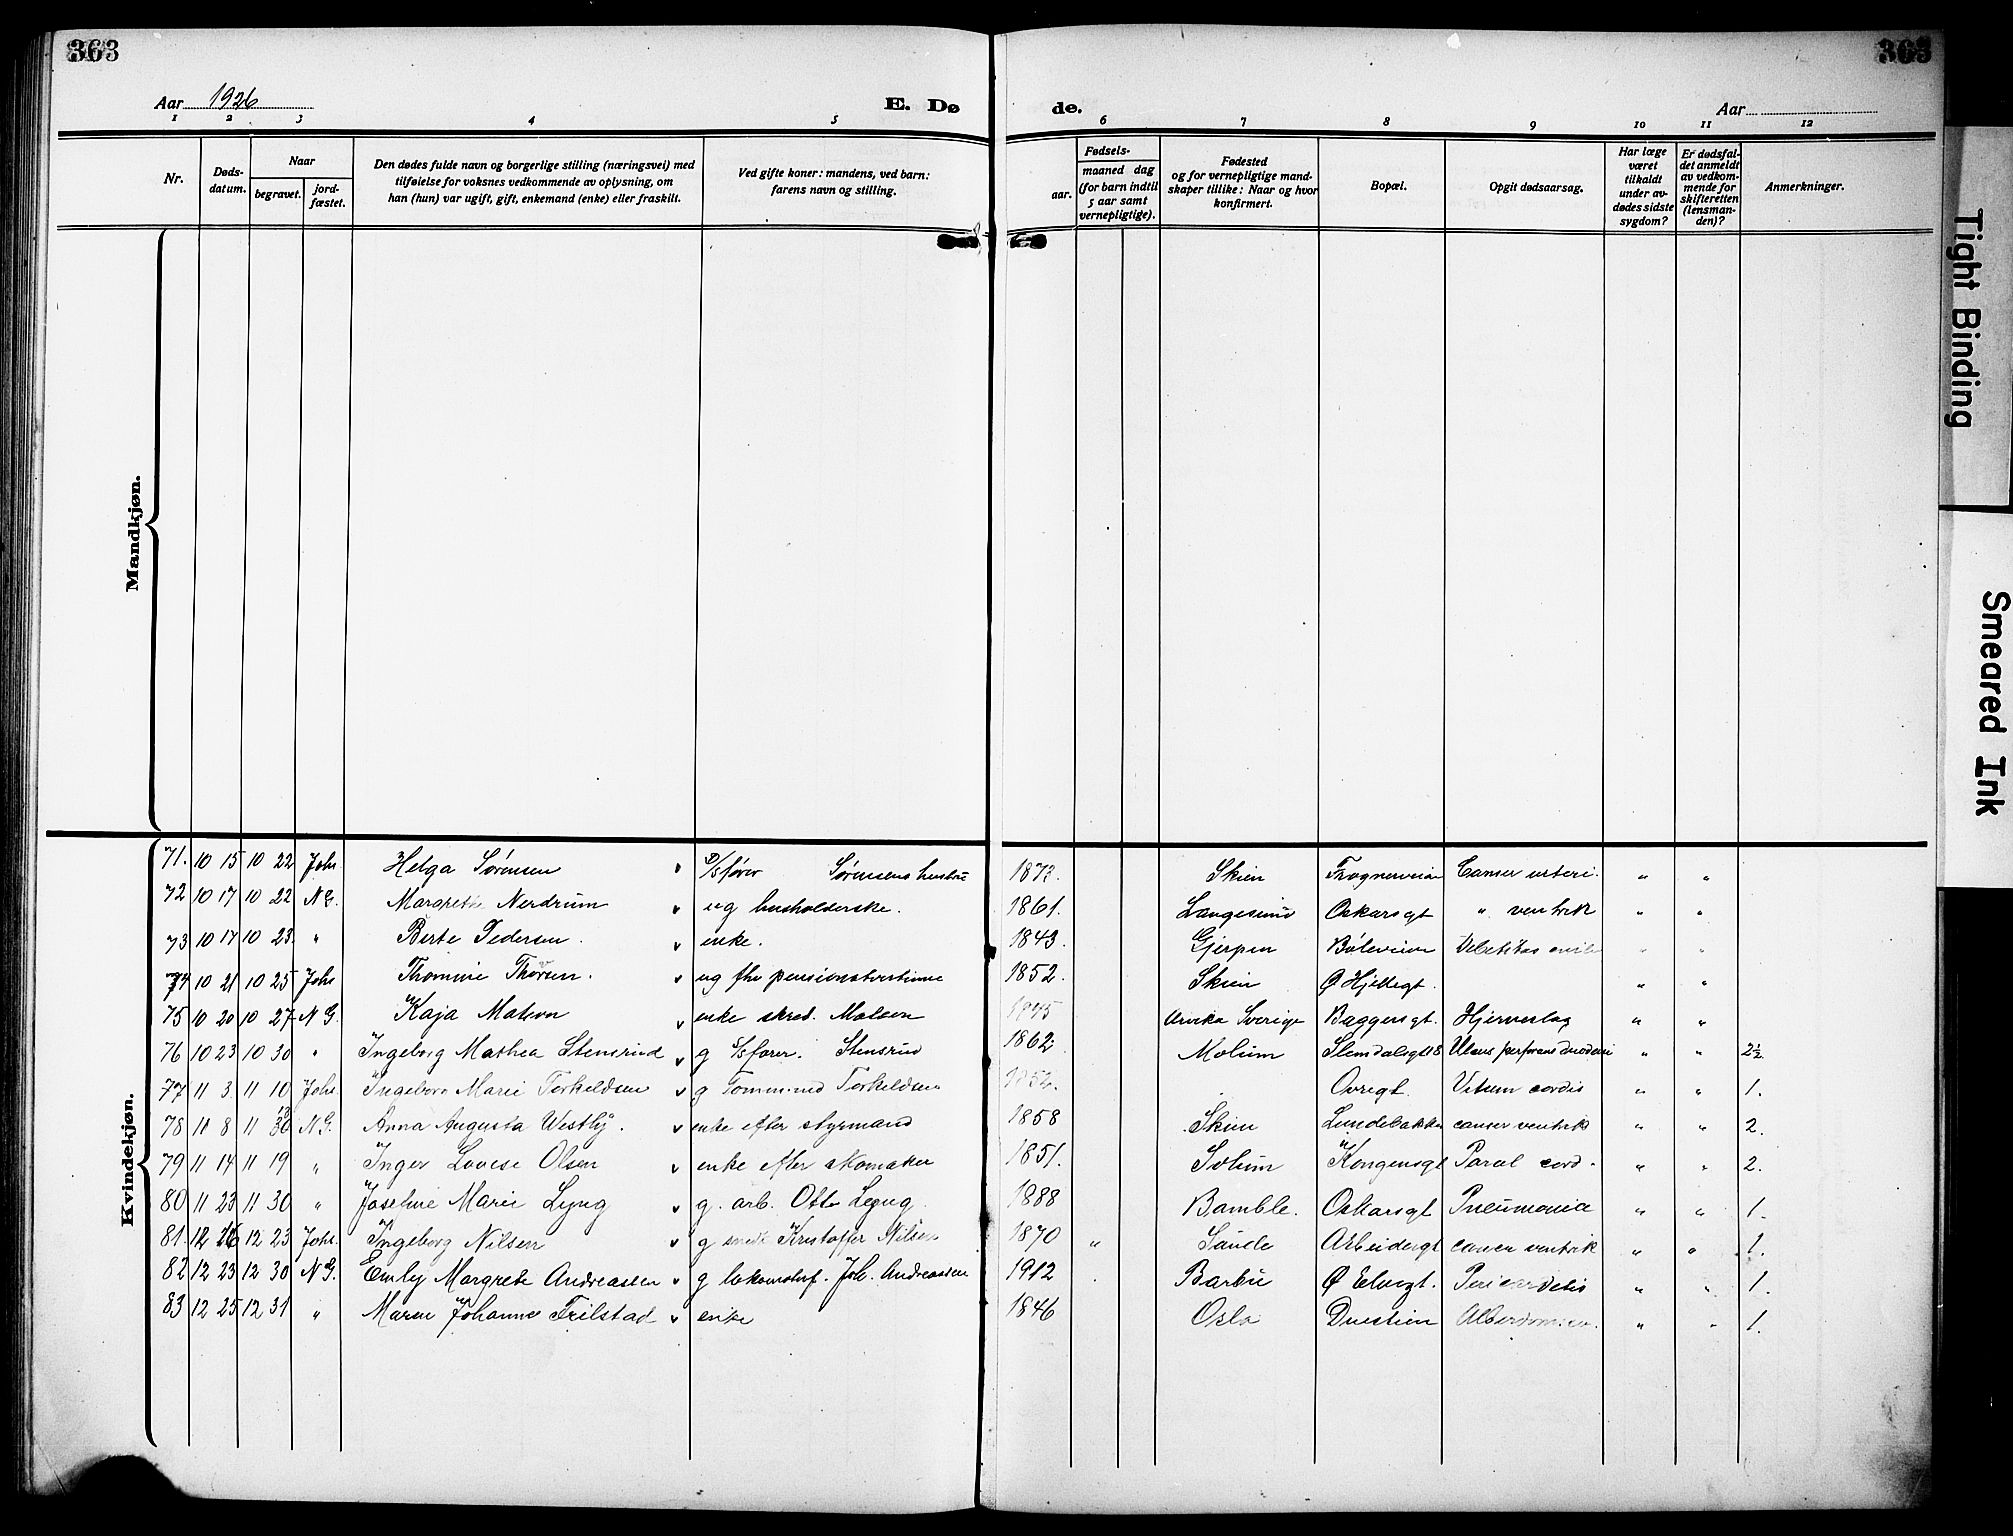 363
363
Aar 1926
E. Dø
de.
Aar
1 2 3 4 5 6 7 8 9 10 11 12
Nr.
Døds-
datum.
Naar
begravet.
jord-
fæstet.
Den dødes fulde navn og borgerlige stilling (næringsvei) med
tilføielse for voksnes vedkommende av oplysning, om
han (hun) var ugift, gift, enkemand (enke) eller fraskilt.
Ved gifte koner: mandens, ved barn:
farens navn og stilling.
Fødsels-
aar.
maaned dag
(for barn indtil
5 aar samt
vernepligtige).
Fødested
og for vernepligtige mand-
skaper tillike: Naar og hvor
konfirmert.
Bopæl.
Opgit dødsaarsag.
Har læge
været
tilkaldt
under av-
dødes sidste
sygdom?
Er dødsfal-
det anmeldt
av vedkom-
mende for
skifteretten
(lensman-
den)?
Anmerkninger.
Mandkjøn.
Kvindekjøn.
71. 10 15 10 22 Johs. Helga Sørensen v D/sfører Sørensens hustru 1873. Skien Frognerveien Cancer uteri. " "
72 10 17 10 22 N G. Margrete Nerdrum v ug husholderske. 1861. Langesund Oskarsgt " ventrik " "
73 10 17 10 23 " Berte Pedersen. v enke. 1843. Gjerpen Bøleveien " "
74 10 21 10 25 Johs Thomine Thorsen. v ug fhv pensionatvertinne 1852. Skien Ø Hjellegt. " "
75 10 20 10 27 N G. Kaja Matson v enke skred. Matson 1845 Arvika Sverige Baggersgt. Hjerneslag " "
76 10 23 10 30 " Ingeborg Mathea Stensrud v g S/sfører. Stensrud 1862 Molum Slemdalsgt 18 Ulcus perforans duodeni " " 2½
77 11 3 11 10 Johs. Ingeborg Marie Torkeldsen v g Tømm.md Torkeldsen 1852. Øvregt. Vitium cordis " " 1.
78 11 8 11 30 N G. Anna Augusta Westly. v enke efter styrmand 1858 Skien Lundebakken cancer ventrik " " 2.
79 11 14 11 19 " Inger Lovise Olsen v enke efter skomaker 1851. Solum Kongensgt Paral cord. " " 2.
80 11 23 11 30 " Josefine Marie Lyng v g. arb. Otto Lyng. 1888 Bamble. Oskarsgt Pneumonia " " 1.
81. 12 16 12 23 Johs. Ingeborg Nilsen v g smed Kristoffer Nilsen 1870 " Saude Arbeidergt cancer ventrik " " 1.
82 12 23 12 30 N G. Emly Margrete Andreassen v g lokomotivf. Joh. Andreassen 1912 Barbu Ø Elvegt. Pericarditis " " 1.
83 12 25 12 31 " Maren Johanne Frilstad v enke 1846 Oslo Duestien Alderdomssv. " " 1.
Tight Binding
Smeared Ink